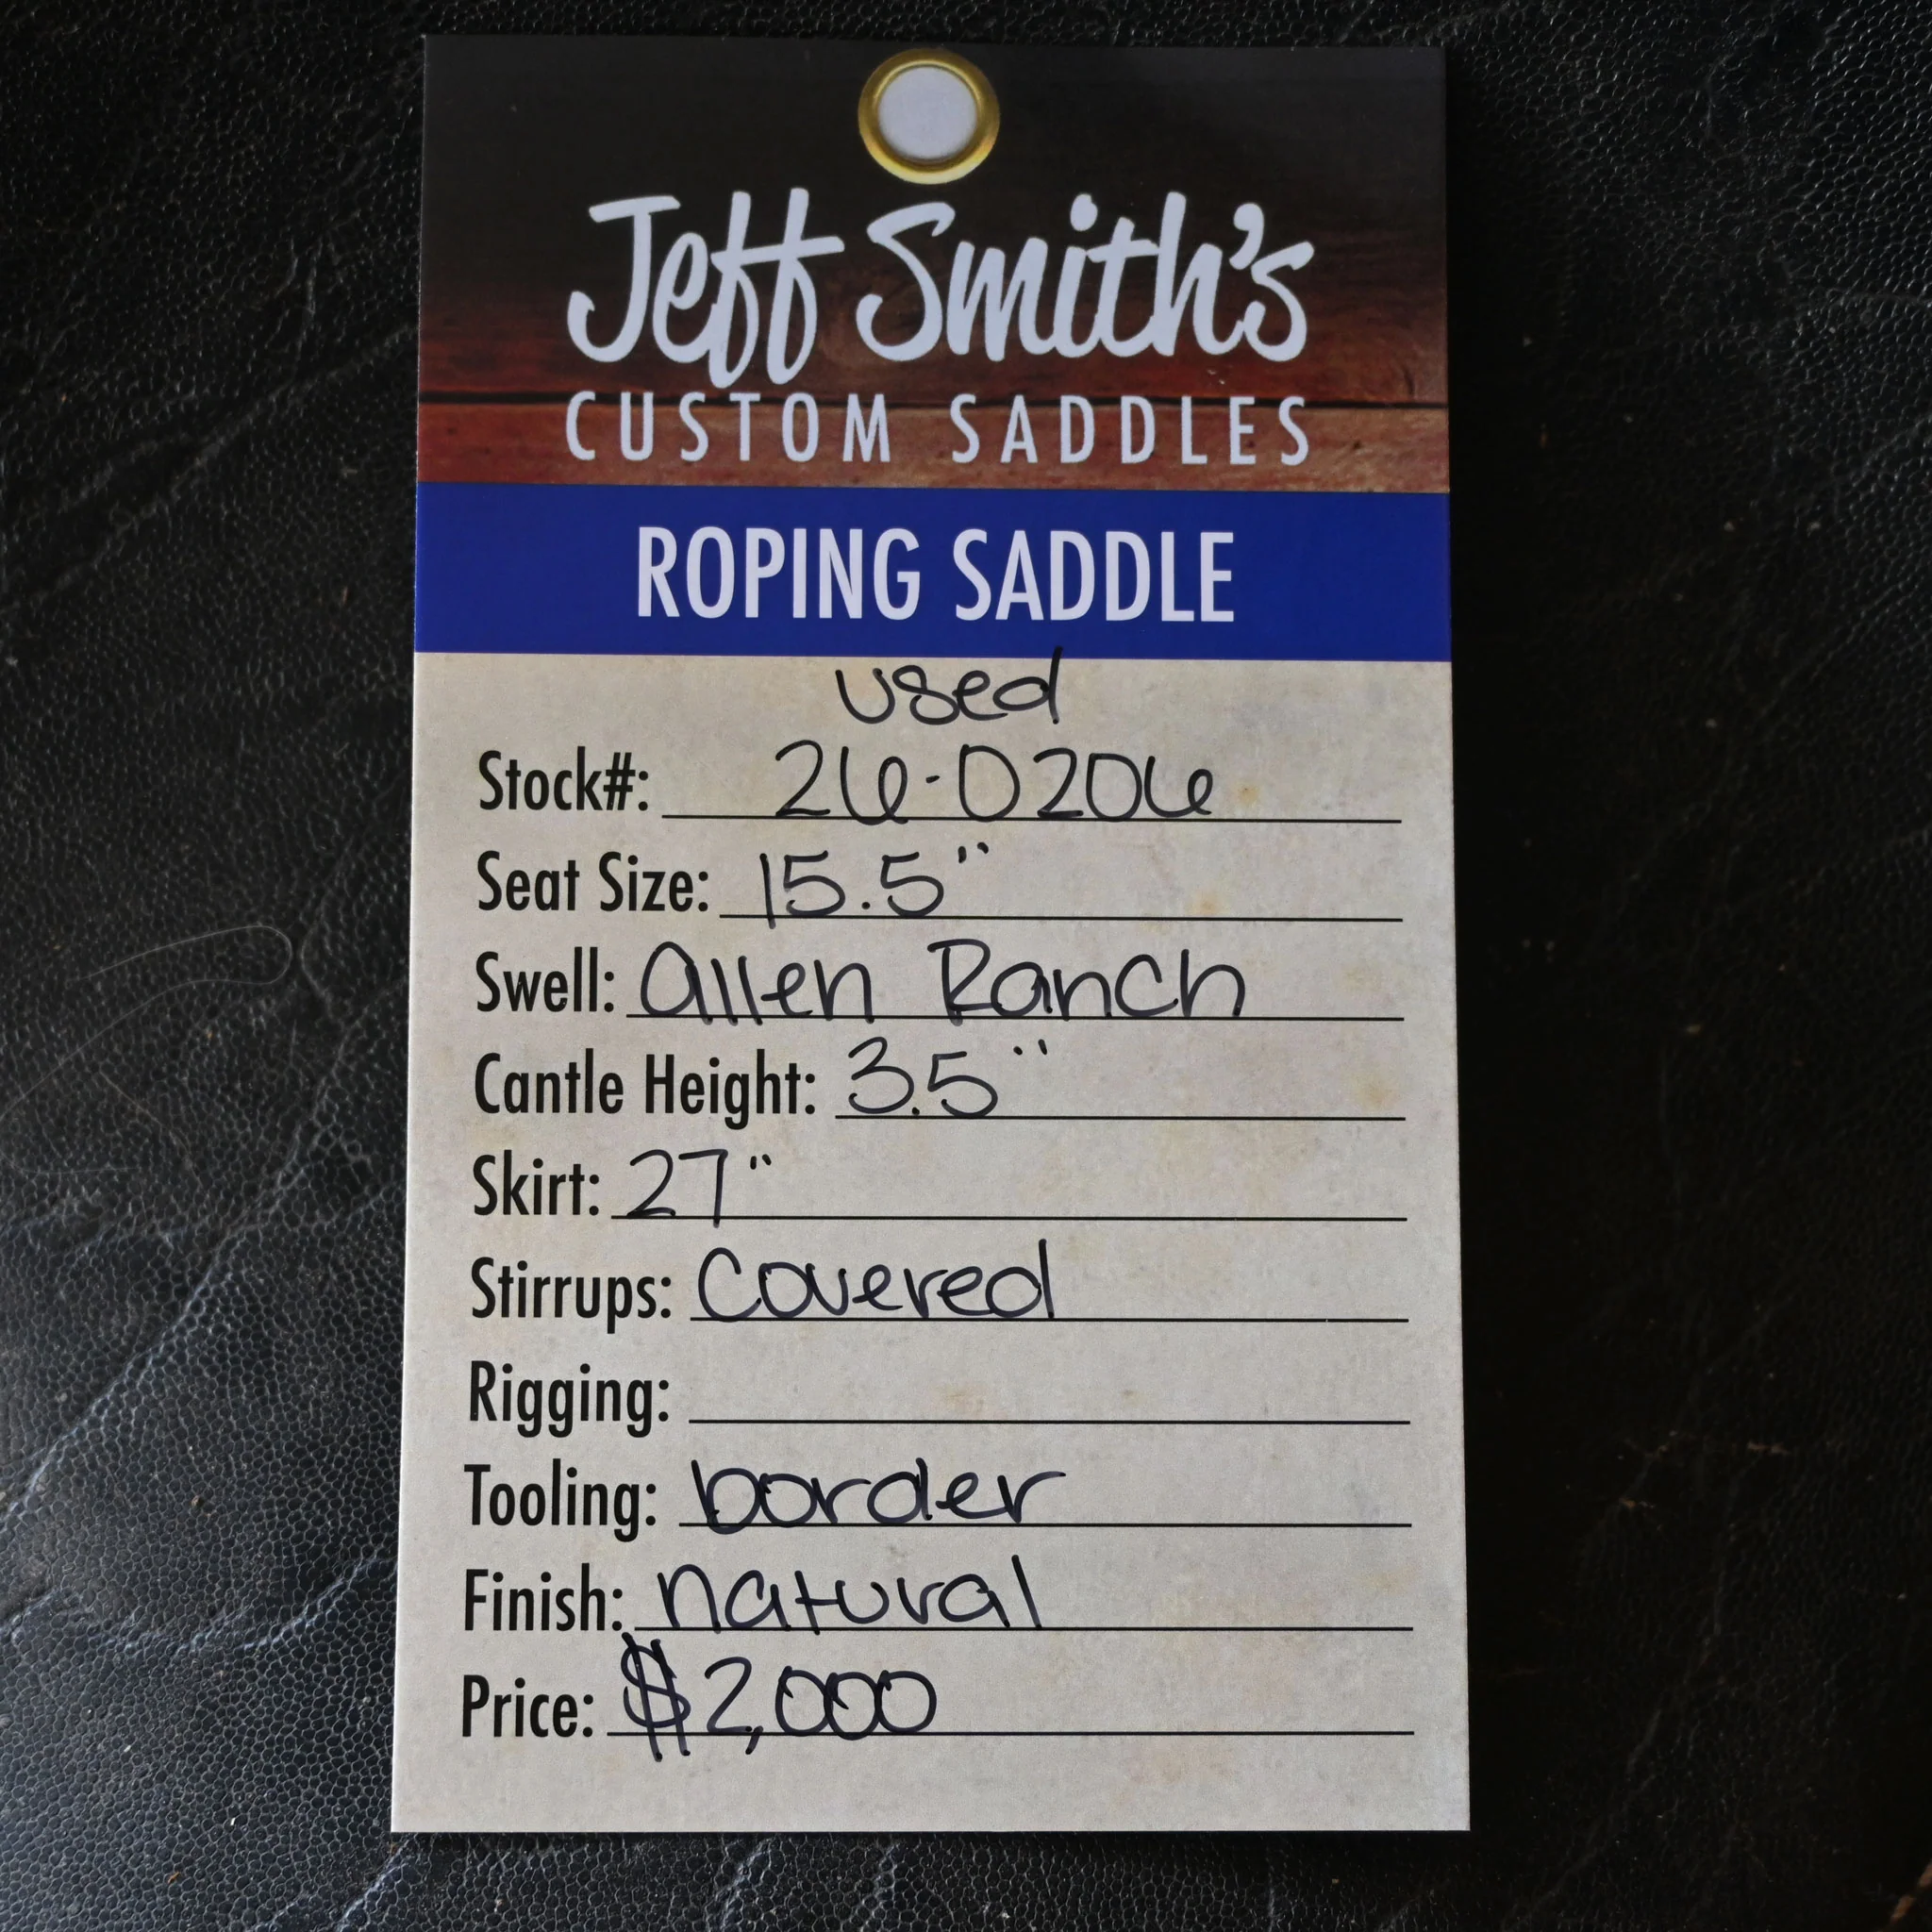 Jeff Smith's
CUSTOM SADDLES
ROPING SADDLE
used
Stock#: 26-0206
Seat Size: 15.5"
Swell: Allen Ranch
Cantle Height: 3.5"
Skirt: 27"
Stirrups: Covered
Rigging:
Tooling: border
Finish: natural
Price: $2,000